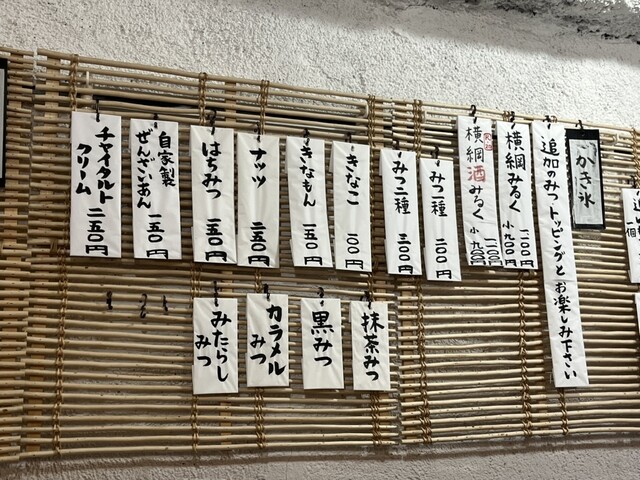 かき氷
追加のみつトッピングとお楽しみ下さい
横綱みるく
一二〇〇円
小九〇〇円
横綱酒みるく
一二〇〇円
小九〇〇円
みつ一種
二〇〇円
みつ二種
三〇〇円
きなこ
一〇〇円
きなもん
一五〇円
ナッツ
二五〇円
はちみつ
一五〇円
自家製
ぜんざいあん
一五〇円
チャイタルト
クリーム
二五〇円
抹茶みつ
黒みつ
カラメル
みつ
みたらし
みつ